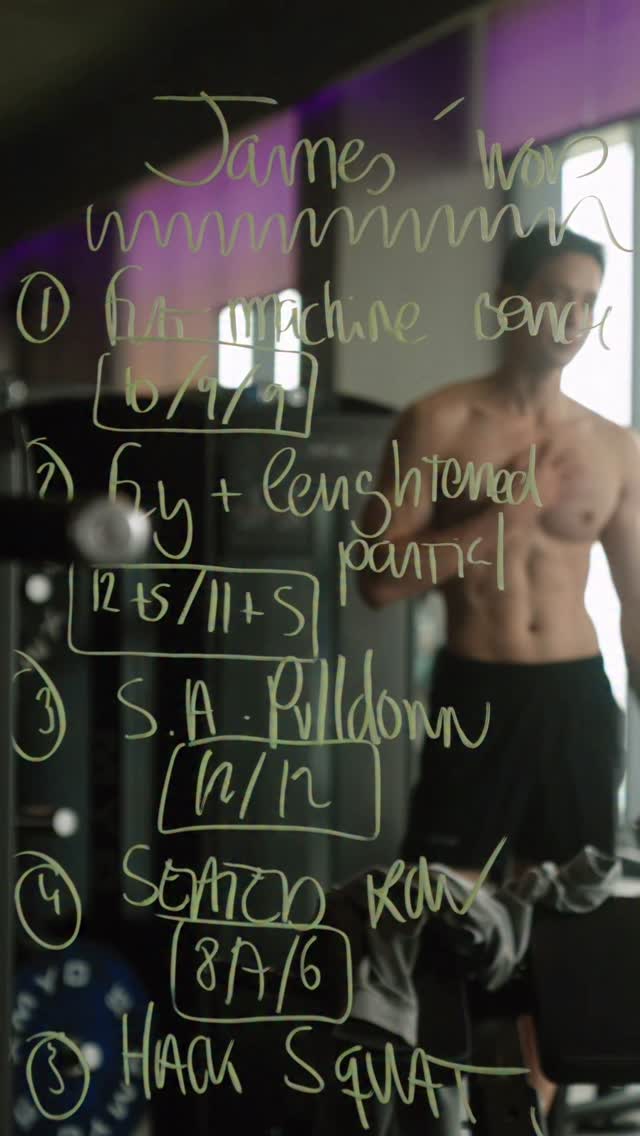 James' WOD
① Flat machine bench
10/9/9
② Fly + lenghtened
partial
12+5/11+5
③ S.A. Pulldown
12/12
④ SEATED ROW
8/7/6
⑤ HACK SQUAT